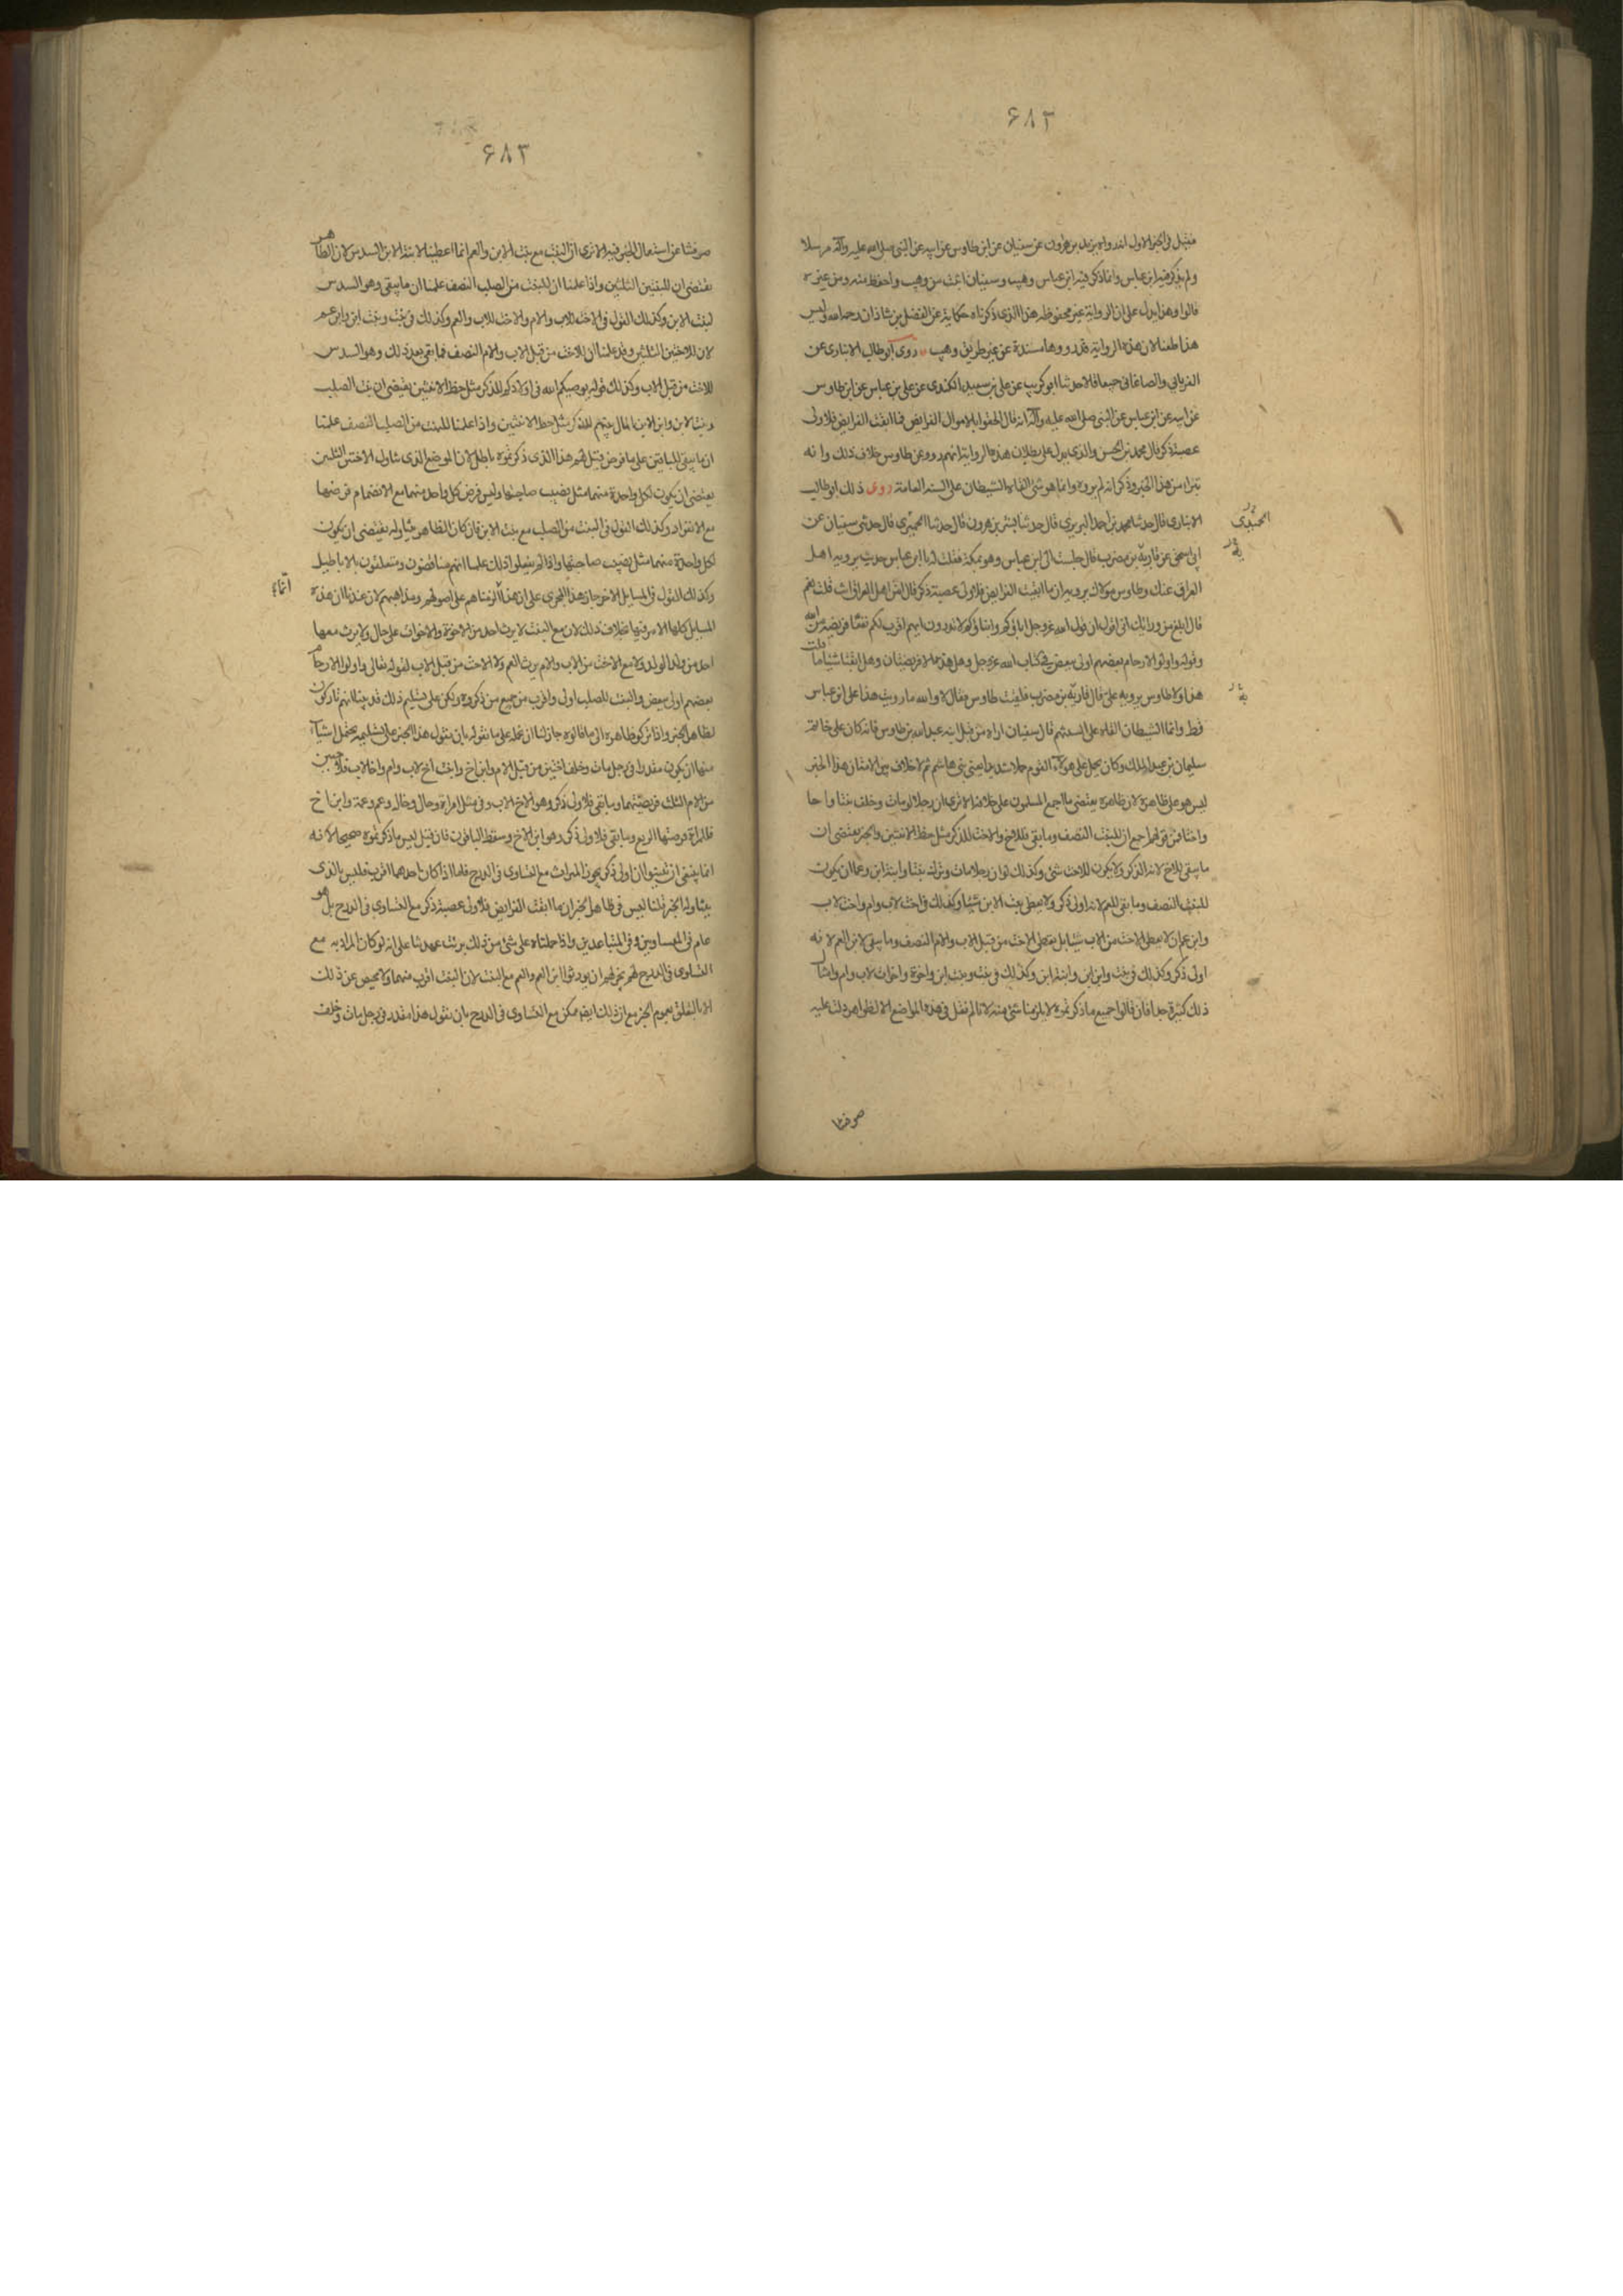 ۶۸۳
فقيل في الخبر الاول انه رواه يزيد بن هرون عن سفيان عن ابن طاوس عن ابيه عن النبي صلى الله عليه وآله مرسلا
ولم يذكر فيه ابن عباس وانما ذكر فيه ابن عباس وهيب وسفيان اثبت من وهيب واحفظ منه ومن غيره
قالوا وهذا يدل على ان الرواية غير محفوظه هذا الذي ذكرناه حكاية عن الفضل بن شاذان رحمه الله وليس
هذا طعنا لان هذه الرواية قد رووها مسندة عن غير طريق وهيب روى ابو طالب الانباري عن
الفريابي والصاغاني جميعا قالا حدثنا ابو كريب عن علي بن سعيد الكندي عن علي بن عباس عن ابن طاوس
عن ابيه عن ابن عباس عن النبي صلى الله عليه وآله انه قال الحقوا بالاموال الفرايض فما ابقت الفرايض فلاولى
عصبة ذكر قال محمد بن الحسن والذي يدل على بطلان هذه الرواية انهم رووا عن طاوس خلاف ذلك وانه
تبرا من هذا الخبر وذكر انه لم يروه وانما هو شئ القاه الشيطان على السنة العامة روى ذلك ابو طالب
الانباري قال حدثنا محمد بن احمد البربري قال حدثنا بشر بن هرون قال حدثنا الحميري قال حدثني سفيان عن
الحميدي
ابي اسحق عن قارية بن مضرب قال جلست الى ابن عباس وهو بمكة فقلت له يا ابن عباس حديث يرويه اهل
العراق عنك وطاوس مولاك يرويه ان ما ابقت الفرايض فلاولى عصبة ذكر قال امن اهل العراق انت قلت نعم
قال ابلغ من ورائك اني اقول ان قول الله عز وجل اباؤكم وابناؤكم لا تدرون ايهم اقرب لكم نفعا فريضة من الله
وقوله واولوا الارحام بعضهم اولى ببعض في كتاب الله عز وجل وهل هذه الا فريضتان وهل ابقتا شيئا ما قلت
هذا ولا طاوس يرويه علي قال قارية بن مضرب فلقيت طاوس فقال لا والله ما رويت هذا على ابن عباس
قط وانما الشيطان القاه على السنتهم قال سفيان اراه من قبل ابنه عبد الله بن طاوس فانه كان على خاتم
سليمان بن عبد الملك وكان يحمل على هؤلاء القوم حملا شديدا يعني بني هاشم ثم لا خلاف بين الامة ان هذا الخبر
ليس هو على ظاهره لان ظاهره يقتضي ما اجمع المسلمون على خلافه الا ترى ان رجلا لو مات وخلف بنتا واخا
واختا فمن قولهم اجمع ان للبنت النصف وما بقي فللاخ والاخت للذكر مثل حظ الانثيين والخبر يقتضي ان
ما يبقى للاخ لانه الذكر ولا يكون للاخت شئ وكذلك لو ان رجلا مات وترك بنتا وابنة ابن وعما ان يكون
للبنت النصف وما بقي للعم لانه اولى ذكر ولا يعطى بنت الابن شيئا وكذلك في اخت لاب وام واخت لاب
وابن عم ان لا يعطى الاخت من الاب شيئا بل يعطى الاخت من قبل الاب والام النصف وما يبقى لابن العم لانه
اولى ذكر وكذلك في بنت وابن ابن وابنة ابن وكذلك في بنت وبنت ابن واخوة واخوات لاب وام وامثال
ذلك كثيرة جدا فان قالوا جميع ما ذكرتموه لا يلزمنا شئ منه لانا لم نقل في هذه المواضع الا لظواهر دلت عليه
صرفتنا
۶۸۳
صرفتنا عن استعمال الخبر فيه الا ترى ان البنت مع بنت الابن والعم انما اعطينا لابنة الابن السدس لان الظاهر
يقتضي ان للبنتين الثلثين واذا علمنا ان للبنت من الصلب النصف علمنا ان ما يبقى وهو السدس
لبنت الابن وكذلك القول في الاخت للاب والام والاخت للاب والعم وكذلك في بنت وبنت ابن وابن عم
لان للاختين الثلثين وقد علمنا ان للاخت من قبل الاب والام النصف فما بقي بعد ذلك وهو السدس
للاخت من قبل الاب وكذلك قوله يوصيكم الله في اولادكم للذكر مثل حظ الانثيين يقتضي ان بنت الصلب
وبنت الابن وابن الابن المال بينهم للذكر مثل حظ الانثيين واذا علمنا للبنت من الصلب النصف علمنا
ان ما يبقى للباقين على ما فرض قيل لهم هذا الذي ذكرتموه باطل لان الموضع الذي تناول الاختين الثلثين
يقتضي ان يكون لكل واحدة منهما مثل نصيب صاحبتها وليس فرض كل واحد منهما مع الانضمام فرضها
مع الانفراد وكذلك القول في البنت من الصلب مع بنت الابن فان كان الظاهر يتناوله يقتضي ان يكون
لكل واحدة منهما مثل نصيب صاحبتها واذا لم يفعلوا ذلك علمنا انهم مناقضون ومتعلقون بالاباطيل
وكذلك القول في المسايل الاخر جاز هذا المجرى على ان هذا الزمناهم على اصولهم ومذاهبهم لان عندنا ان هذه
انماء
المسايل كلها الامر فيها بخلاف ذلك لان مع البنت لا يرث احد من الاخوة والاخوات على حال ولا يرث معها
احد من ولد الولد ولا مع الاخت من الاب والام يرث العم ولا الاخت من قبل الاب لقوله تعالى واولوا الارحام
بعضهم اولى ببعض والبنت للصلب اولى واقرب من جميع من ذكروه ويمكن على تسليم ذلك قد بينا انهم تاركون
لظاهر الخبر واذا تركوا ظاهره الى ما قالوه جاز لنا ان نحمله على ما نقوله بان نقول هذا الخبر على تسليمه يحتمل اشياء
منها ان يكون مقدرا في رجل مات وخلف اختين من قبل الام وابن اخ وابنت اخ لاب وام واخا لاب فللاختين
من الام الثلث فريضتهما وما بقي فلاولى ذكر وهو الاخ للاب وفي مثل امراة وخال وخالة وعم وعمة وابن اخ
فللمراة فرضها الربع وما بقي فلاولى ذكر وهو ابن الاخ وسقط الباقون فان قيل ليس ما ذكرتموه صحيحا لانه
انما ينبغي ان تبينوا ان اولى ذكر يحوز الميراث مع التساوي في الدرج فاما اذا كان احدهما اقرب فليس بالذي
يتناوله الخبر قلنا ليس في ظاهر الخبر ان ما ابقت الفرايض فلاولى عصبة ذكر مع التساوي في الدرج بل هو
عام في المتساويين وفي المتباعدين واذا حملناه على شئ من ذلك برئت عهدتنا على انه لو كان المراد به مع
التساوي في الدرج لهم يجز لهم ان يورثوا ابن العم والعم مع البنت لان البنت اقرب منهما ولا محيص عن ذلك
الا بالتعلق بعموم الخبر مع ان ذلك ايضا ممكن مع التساوي في الدرج بان نقول هذا مقدر في رجل مات وخلف